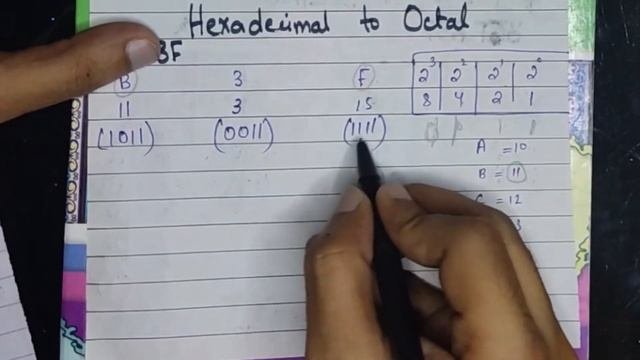 Hexadecimal to Octal
B3F
B 3 F
11 3 15
(1011) (0011) (1111)
2³ 2² 2¹ 2⁰
8 4 2 1
A = 10
B = 11
C = 12
3